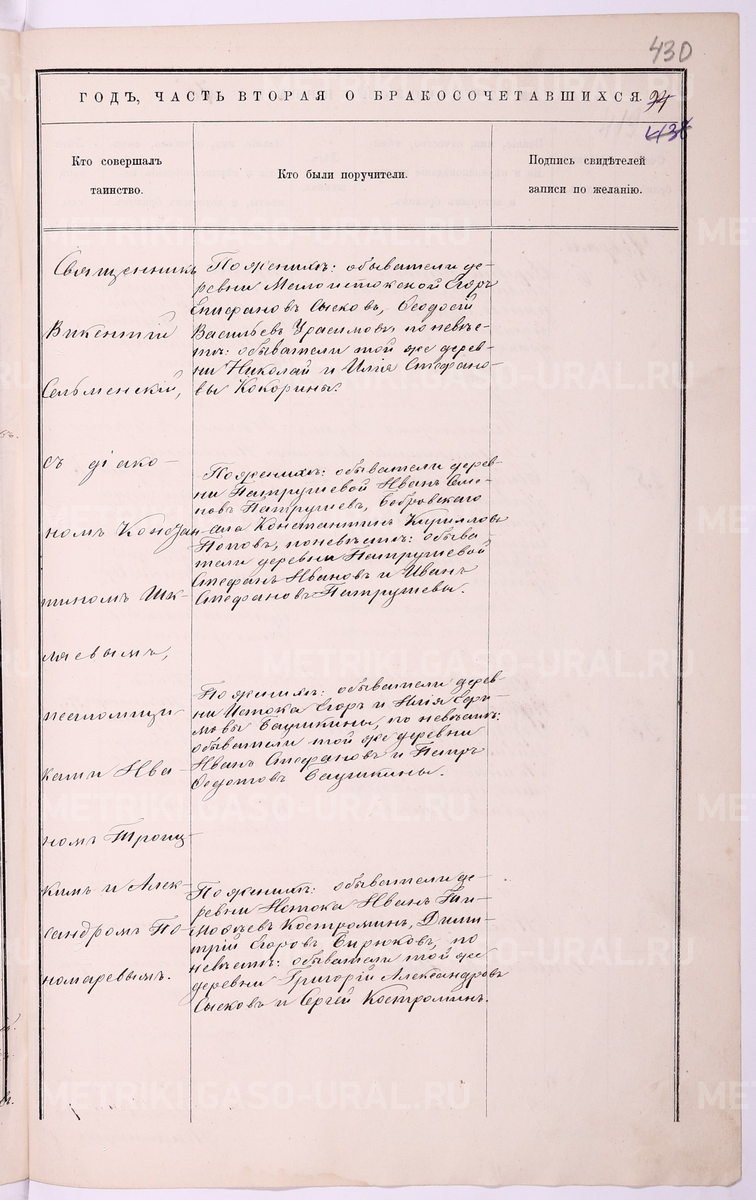 430
ГОДЪ, ЧАСТЬ ВТОРАЯ О БРАКОСОЧЕТАВШИХСЯ.
Кто совершалъ
таинство.
Кто были поручители.
Подпись свидѣтелей
записи по желанію.
Священникъ
Викентій
Сельменскій,
съ діако-
номъ Констан-
тиномъ Шк-
ляевымъ,
псаломщи-
ками Ива-
номъ Троиц-
кимъ и Алек-
сандромъ По-
номаревымъ.
По женихѣ: обыватели де-
ревни Малоистокской Егоръ
Епифановъ Сысковъ, Ѳеодосій
Васильевъ Урасимовъ, по невѣс-
тѣ: обыватели той же дерев-
ни Николай и Илія Стефано-
вы Кокорины.
По женихѣ: обыватели дерев-
ни Патрушевой Иванъ Семе-
новъ Патрушевъ, Бобровскаго
села Константинъ Кирилловъ
Поповъ, по невѣстѣ: обыва-
тели деревни Патрушевой
Стефанъ Ивановъ и Иванъ
Стефановъ Патрушевы.
По женихѣ: обыватели дерев-
ни Истока Егоръ и Илія Ефи-
мовы Баушкины, по невѣстѣ:
обыватели той же деревни
Иванъ Стефановъ и Петръ
Ѳедотовъ Баушкины.
По женихѣ: обыватели де-
ревни Истока Иванъ Ти-
моѳеевъ Костроминъ, Дими-
трій Егоровъ Бирюковъ, по
невѣстѣ: обыватели той же
деревни Григорій Александровъ
Сысковъ и Сергей Костроминъ.
METRIKI.GASO-URAL.RU